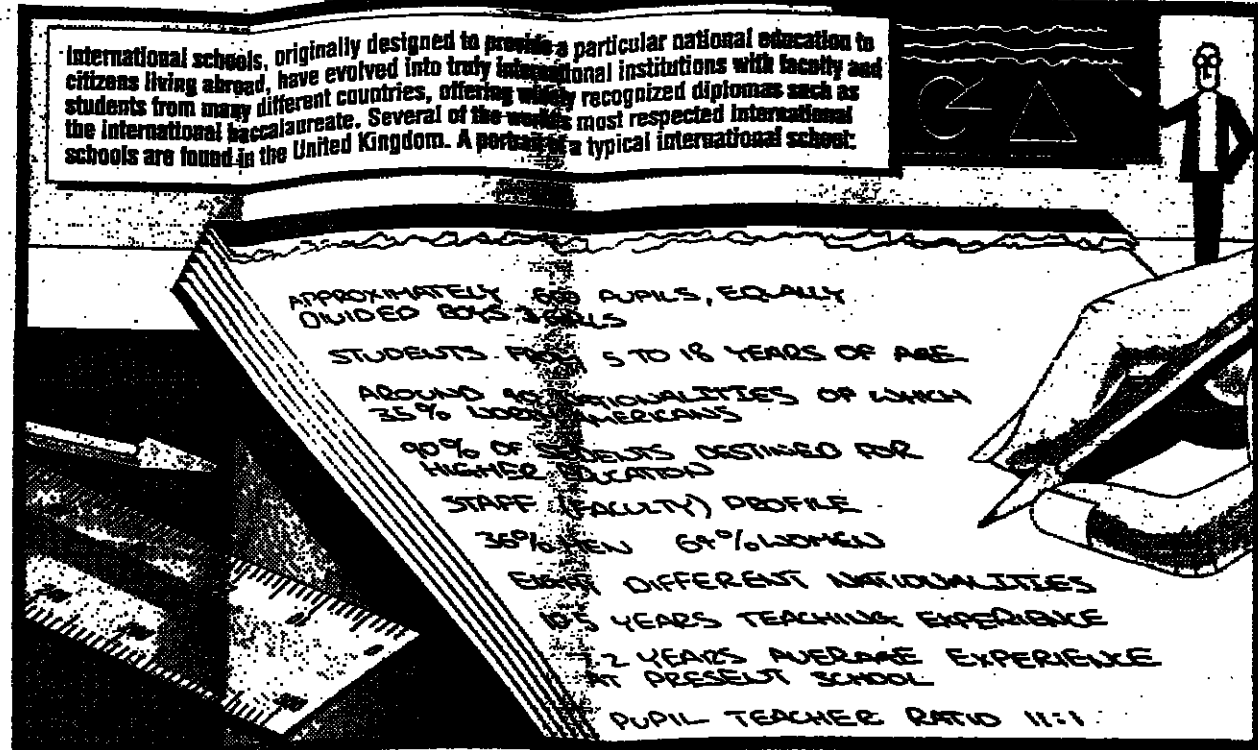 International schools, originally designed to provide a particular national education to
citizens living abroad, have evolved into truly international institutions with faculty and
students from many different countries, offering widely recognized diplomas such as
the international baccalaureate. Several of the world's most respected international
schools are found in the United Kingdom. A portrait of a typical international school:
APPROXIMATELY PUPILS, EQUALLY
DIVIDED BOYS & GIRLS
STUDENTS FROM 5 TO 18 YEARS OF AGE
AROUND NATIONALITIES OF WHICH
35% AMERICANS
90% OF STUDENTS DESTINED FOR
HIGHER EDUCATION
STAFF (FACULTY) PROFILE
36% MEN 64% WOMEN
EIGHT DIFFERENT NATIONALITIES
YEARS TEACHING EXPERIENCE
2 YEARS AVERAGE EXPERIENCE
AT PRESENT SCHOOL
PUPIL TEACHER RATIO 11:1